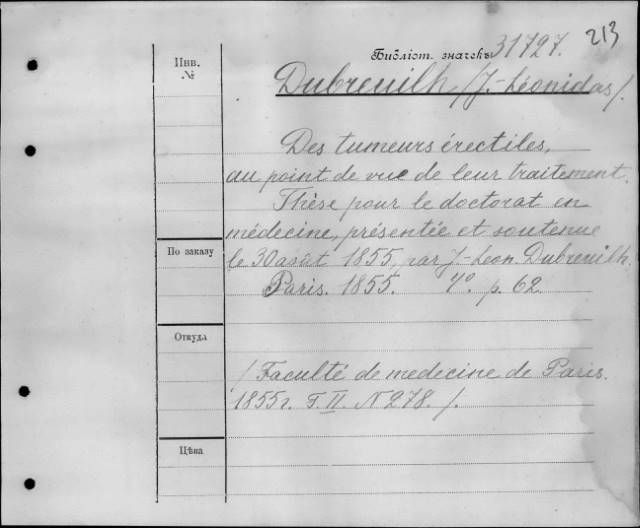 213
Инв. №
Библіот. значекъ 31727.
Dubreuilh /J.-Léonidas/.
Des tumeurs érectiles,
au point de vue de leur traitement.
Thèse pour le doctorat en
médecine, présentée et soutenue
По заказу
le 30 août 1855, par J-Léon Dubreuilh.
Paris. 1855. 4º. p. 62
Откуда
/Faculté de medecine de Paris.
1855г. T. II. N 278./.
Цѣна